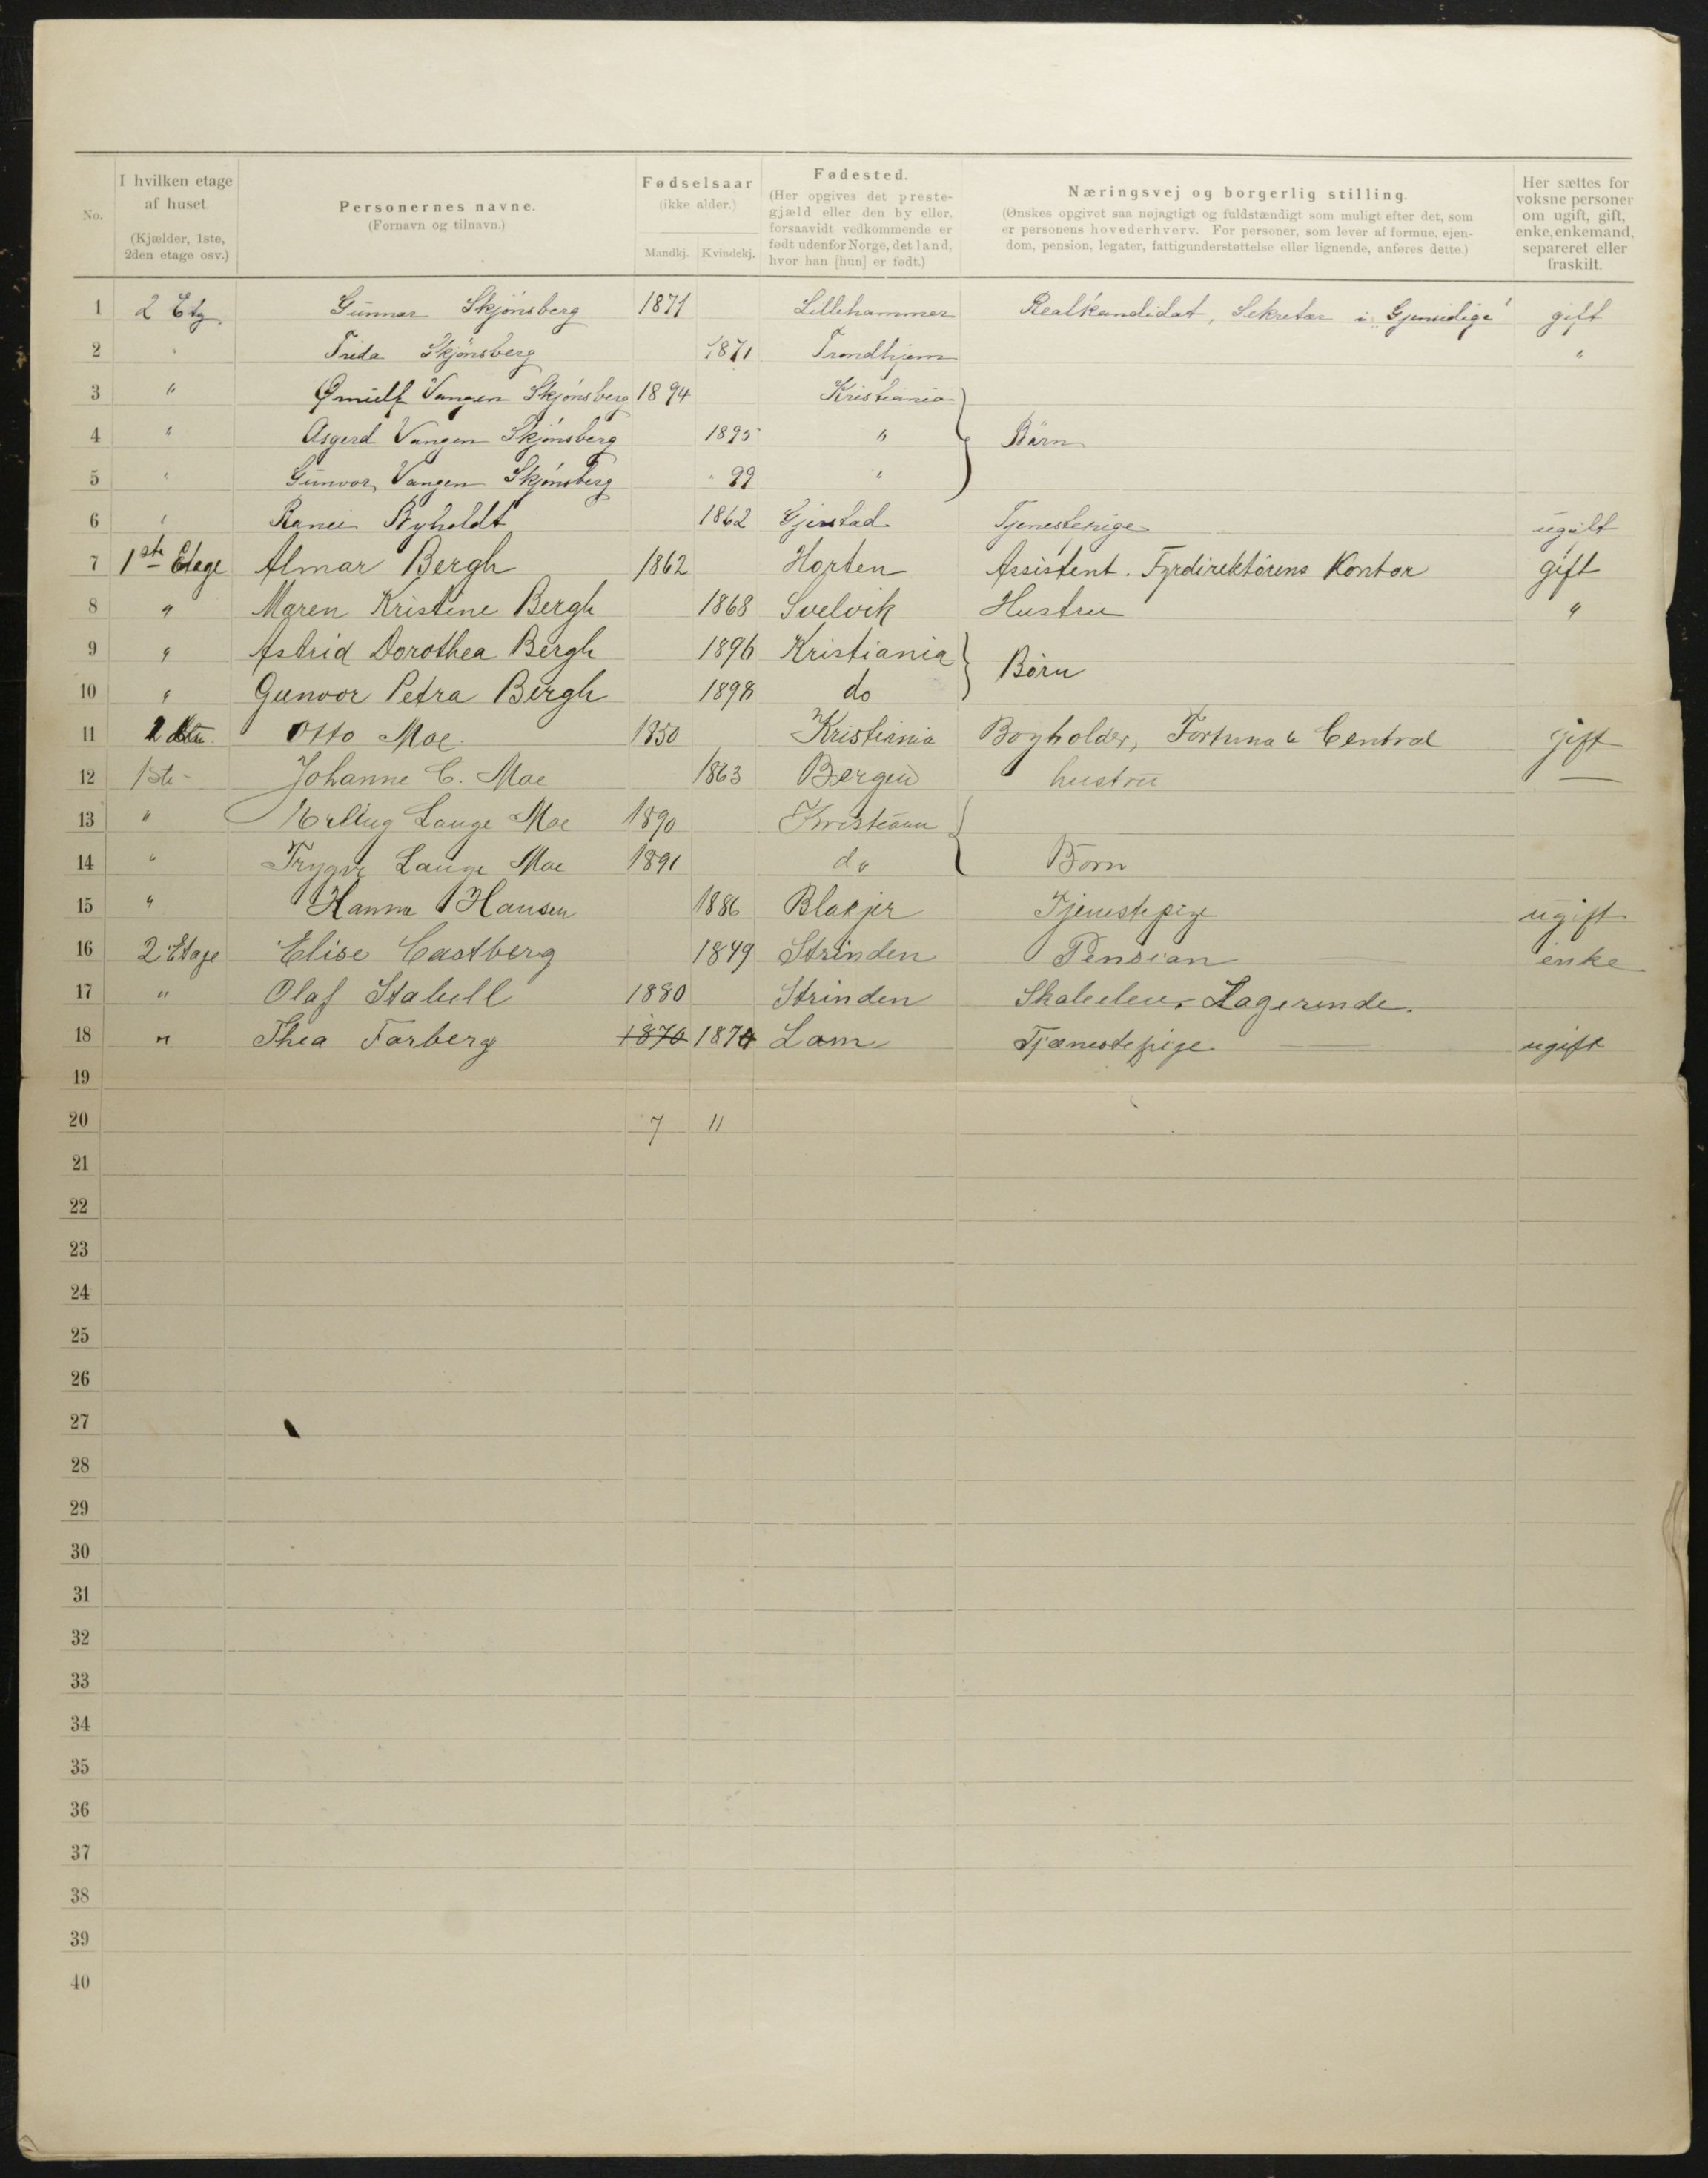 No.
I hvilken etage af huset.
(Kjælder, 1ste, 2den etage osv.)
Personernes navne.
(Fornavn og tilnavn.)
Fødselsaar
(ikke alder.)
Mandkj. Kvindekj.
Fødested.
(Her opgives det prestegjæld eller den by eller, forsaavidt vedkommende er født udenfor Norge, det land, hvor han [hun] er født.)
Næringsvej og borgerlig stilling.
(Ønskes opgivet saa nøjagtigt og fuldstændigt som muligt efter det, som er personens hovederhverv. For personer, som lever af formue, ejendom, pension, legater, fattigunderstøttelse eller lignende, anføres dette.)
Her sættes for voksne personer om ugift, gift, enke, enkemand, separeret eller fraskilt.
1 2 Etg Gunnar Skjønsberg 1871 Lillehammer Realkandidat, Sekretær i "Gjensidige" gift
2 " Frida Skjønsberg 1871 Trondhjem "
3 " Vangen Skjønsberg 1894 Kristiania
4 " Asgerd Vangen Skjønsberg 1895 " Børn
5 " Gunvor Vangen Skjønsberg " 99 "
6 " 1862 Gjerstad Tjenestepige ugift
7 1ste Etage Almar Bergh 1862 Horten Assistent. Fyrdirektørens Kontor gift
8 " Maren Kristine Bergh 1868 Svelvik Hustru "
9 " Astrid Dorothea Bergh 1896 Kristiania Børn
10 " Gunvor Petra Bergh 1898 do
11 Otto Moe 1850 Kristiania Bogholder, Fortuna & Central gift
12 1ste - Johanne C. Moe 1863 Bergen hustru —
13 " Erling Lange Moe 1890 Kristiania
14 " Trygve Lange Moe 1891 do Børn
15 " Hanna Hansen 1886 Blakjer Tjenestepige ugift
16 2 Etage Elise Castberg 1849 Strinden Pension enke
17 " Olaf Stabell 1880 Strinden Lagerende.
18 " Thea Farberg 1870 1870 Lom Tjænestepige ugift
19
20 7 11
21
22
23
24
25
26
27
28
29
30
31
32
33
34
35
36
37
38
39
40